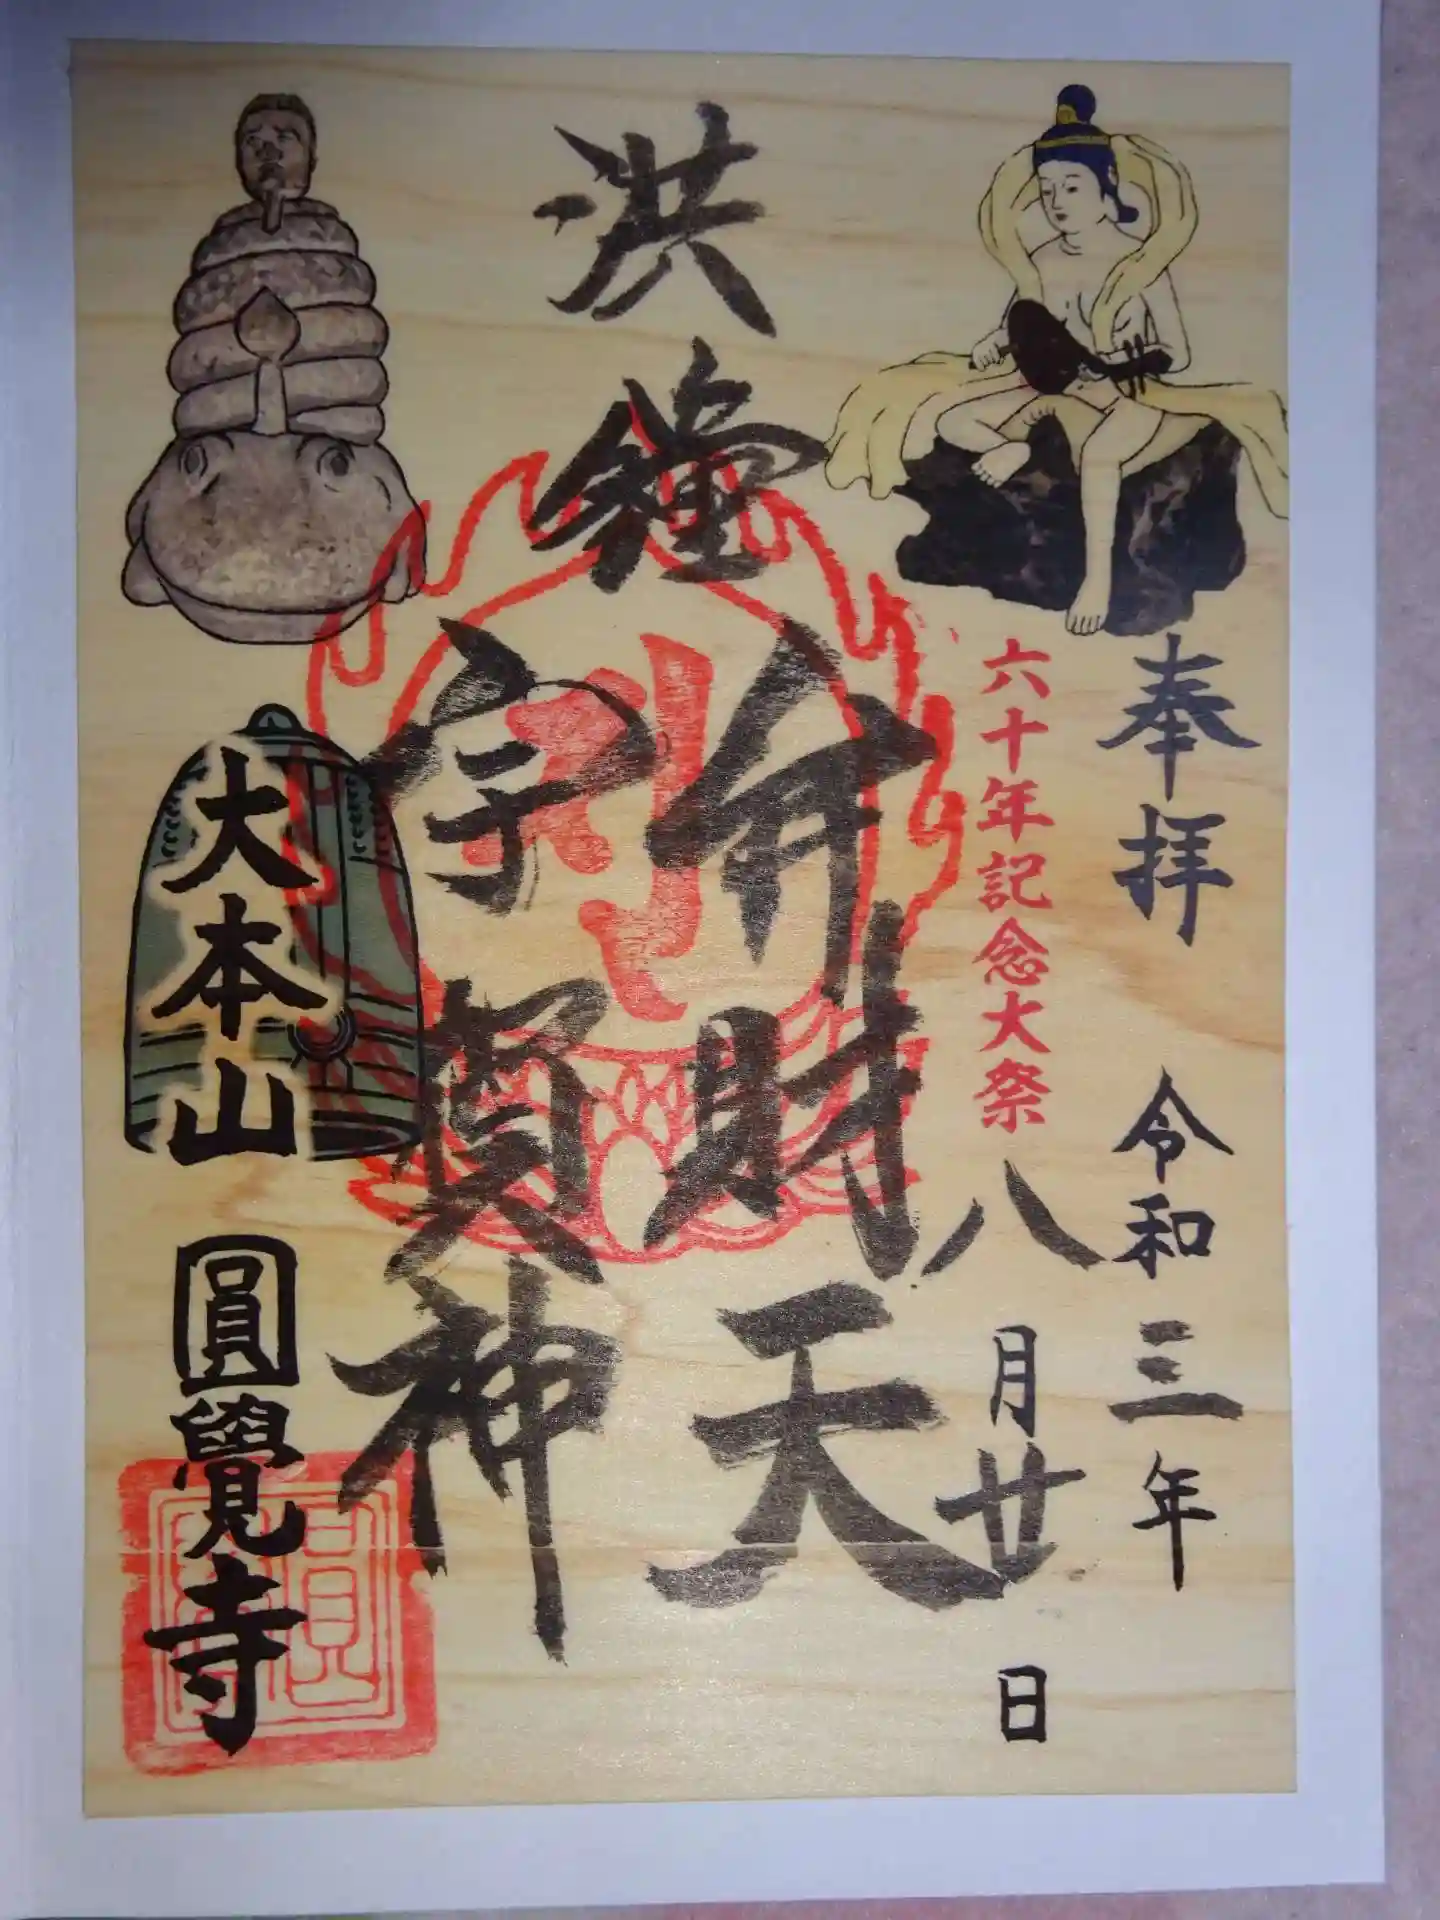 奉拝
令和三年
六十年記念大祭
八月廿日
洪鐘
弁財天
宇賀神
大本山
圓覺寺